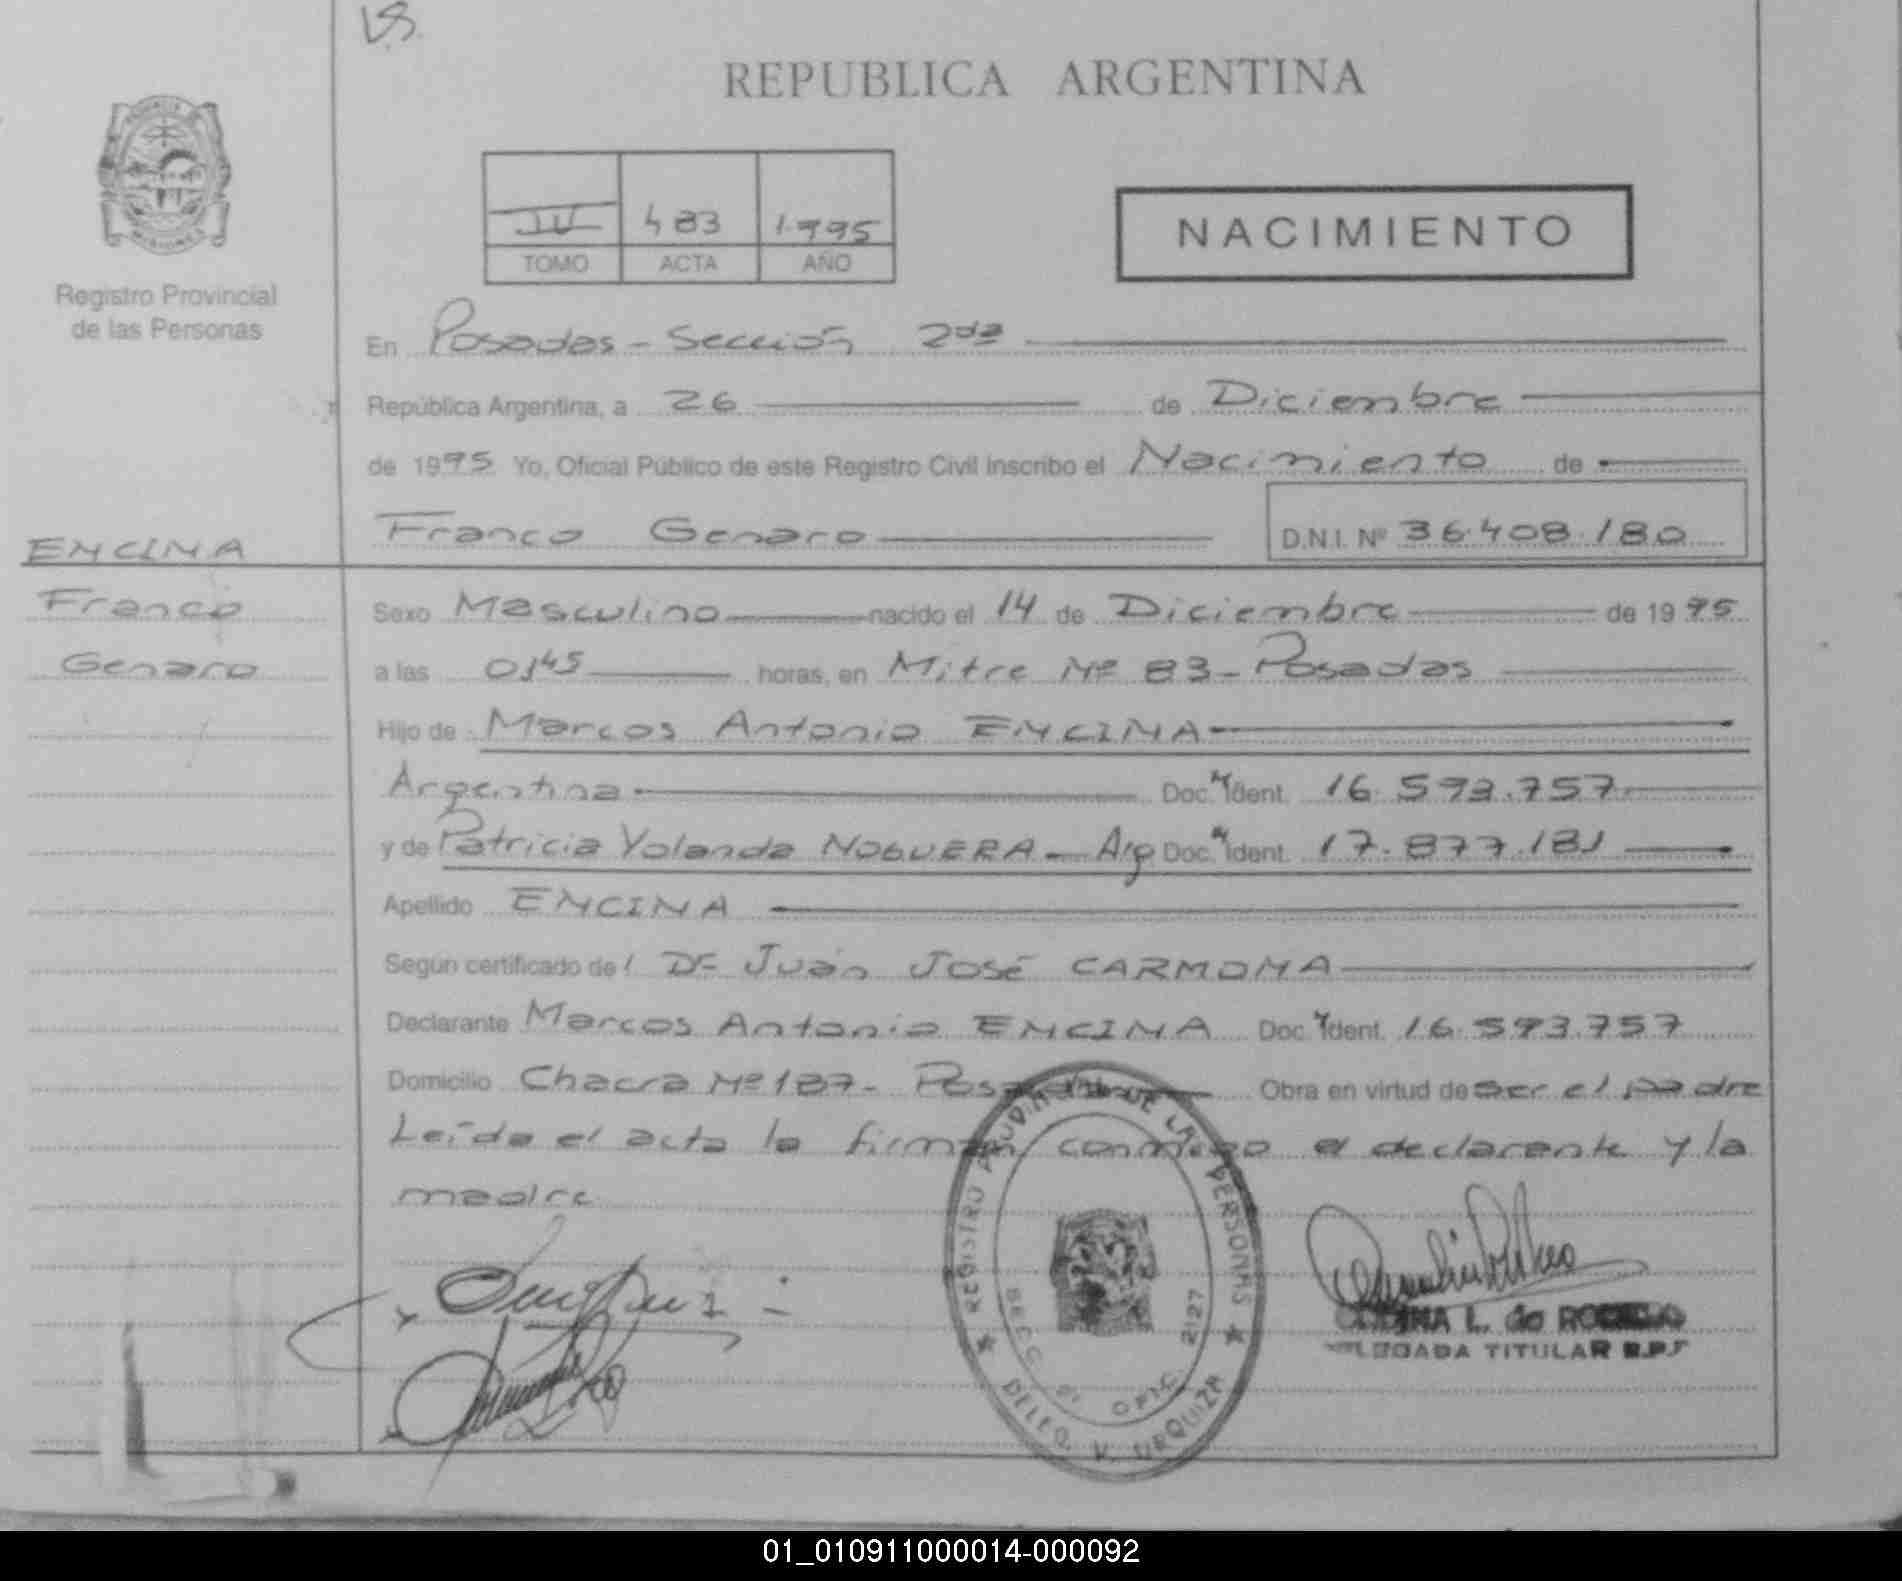 REPUBLICA ARGENTINA
MISIONES
Registro Provincial
de las Personas
IV 483 1.995
TOMO ACTA AÑO
NACIMIENTO
En Posadas - Sección 2da
República Argentina, a 26 de Diciembre
de 1995 Yo, Oficial Público de este Registro Civil inscribo el Nacimiento de
Franco Genaro D.N.I. Nº 36.408.180
ENCINA
Franco
Genaro
Sexo Masculino nacido el 14 de Diciembre de 1995
a las 0,45 horas, en Mitre Nº 83 - Posadas
Hijo de Marcos Antonio ENCINA
Argentina Doc. Ident. 16.593.757
y de Patricia Yolanda NOGUERA - Arg Doc. Ident. 17.877.181
Apellido ENCINA
Según certificado del Dr Juan José CARMONA
Declarante Marcos Antonio ENCINA Doc. Ident. 16.593.757
Domicilio Chacra Nº 187 - Posadas Obra en virtud de ser el padre
Leída el acta la firman conmigo el declarente y la
madre
REGISTRO PROVINCIAL DE LAS PERSONAS
SECC 2ª OFIC 2127
DELEG. V. URQUIZA
L. de
TITULAR R.P.P
01_010911000014-000092